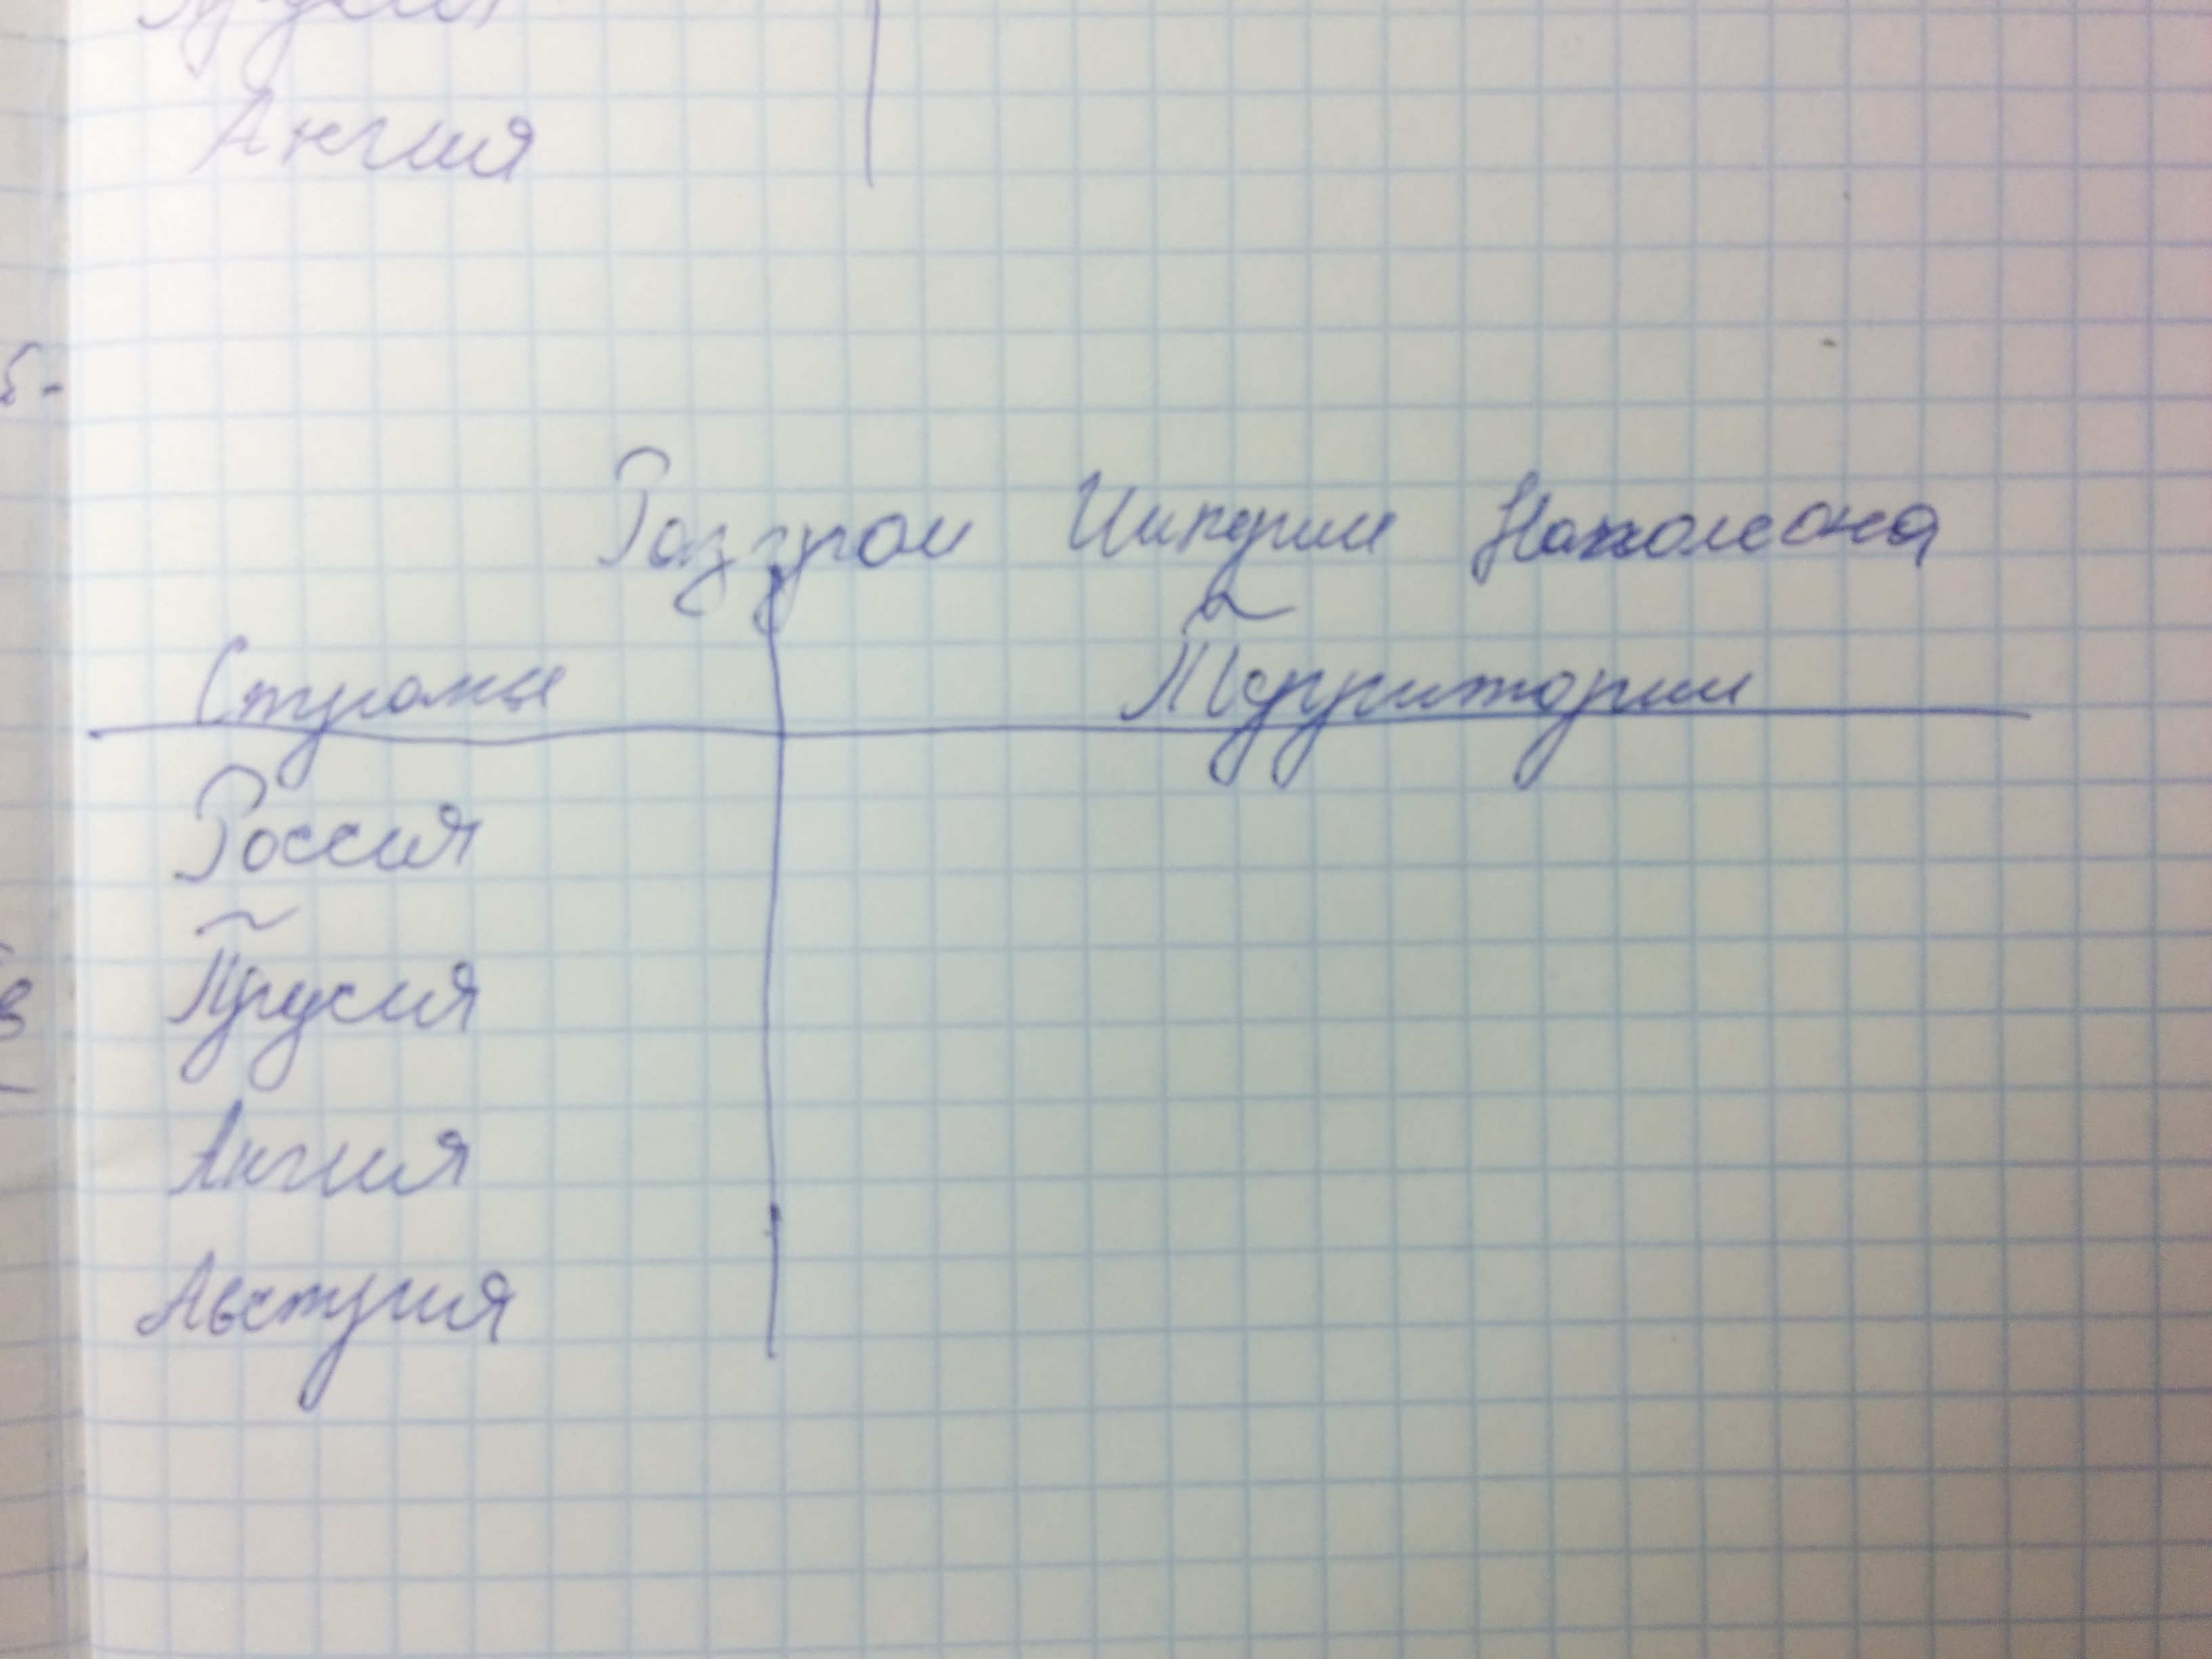 Англия
Разгром Империи Наполеона
Страны Территории
Россия
Прусия
Англия
Австрия